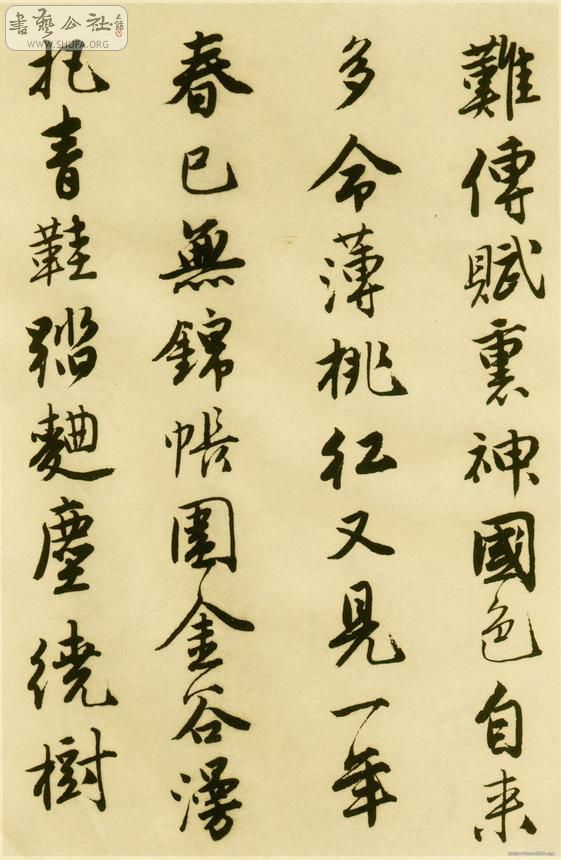 書藝公社
WWW.SHUFA.ORG
難傳賦惠神國色自来
多命薄桃紅又見一年
春已無錦帳圍金谷漫
把青鞋踏麯塵繞樹